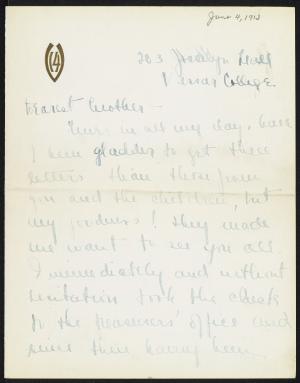 June 4, 1912
203 Josselyn Hall
Vassar College.
Dearest Mother -
Never in all my days, have
I been gladder to get three
letters than those from
you and the children, but
my goodness! they made
me want to see you all.
I immediately and without
hesitation took the check
to the treasurers' office and
since then having been